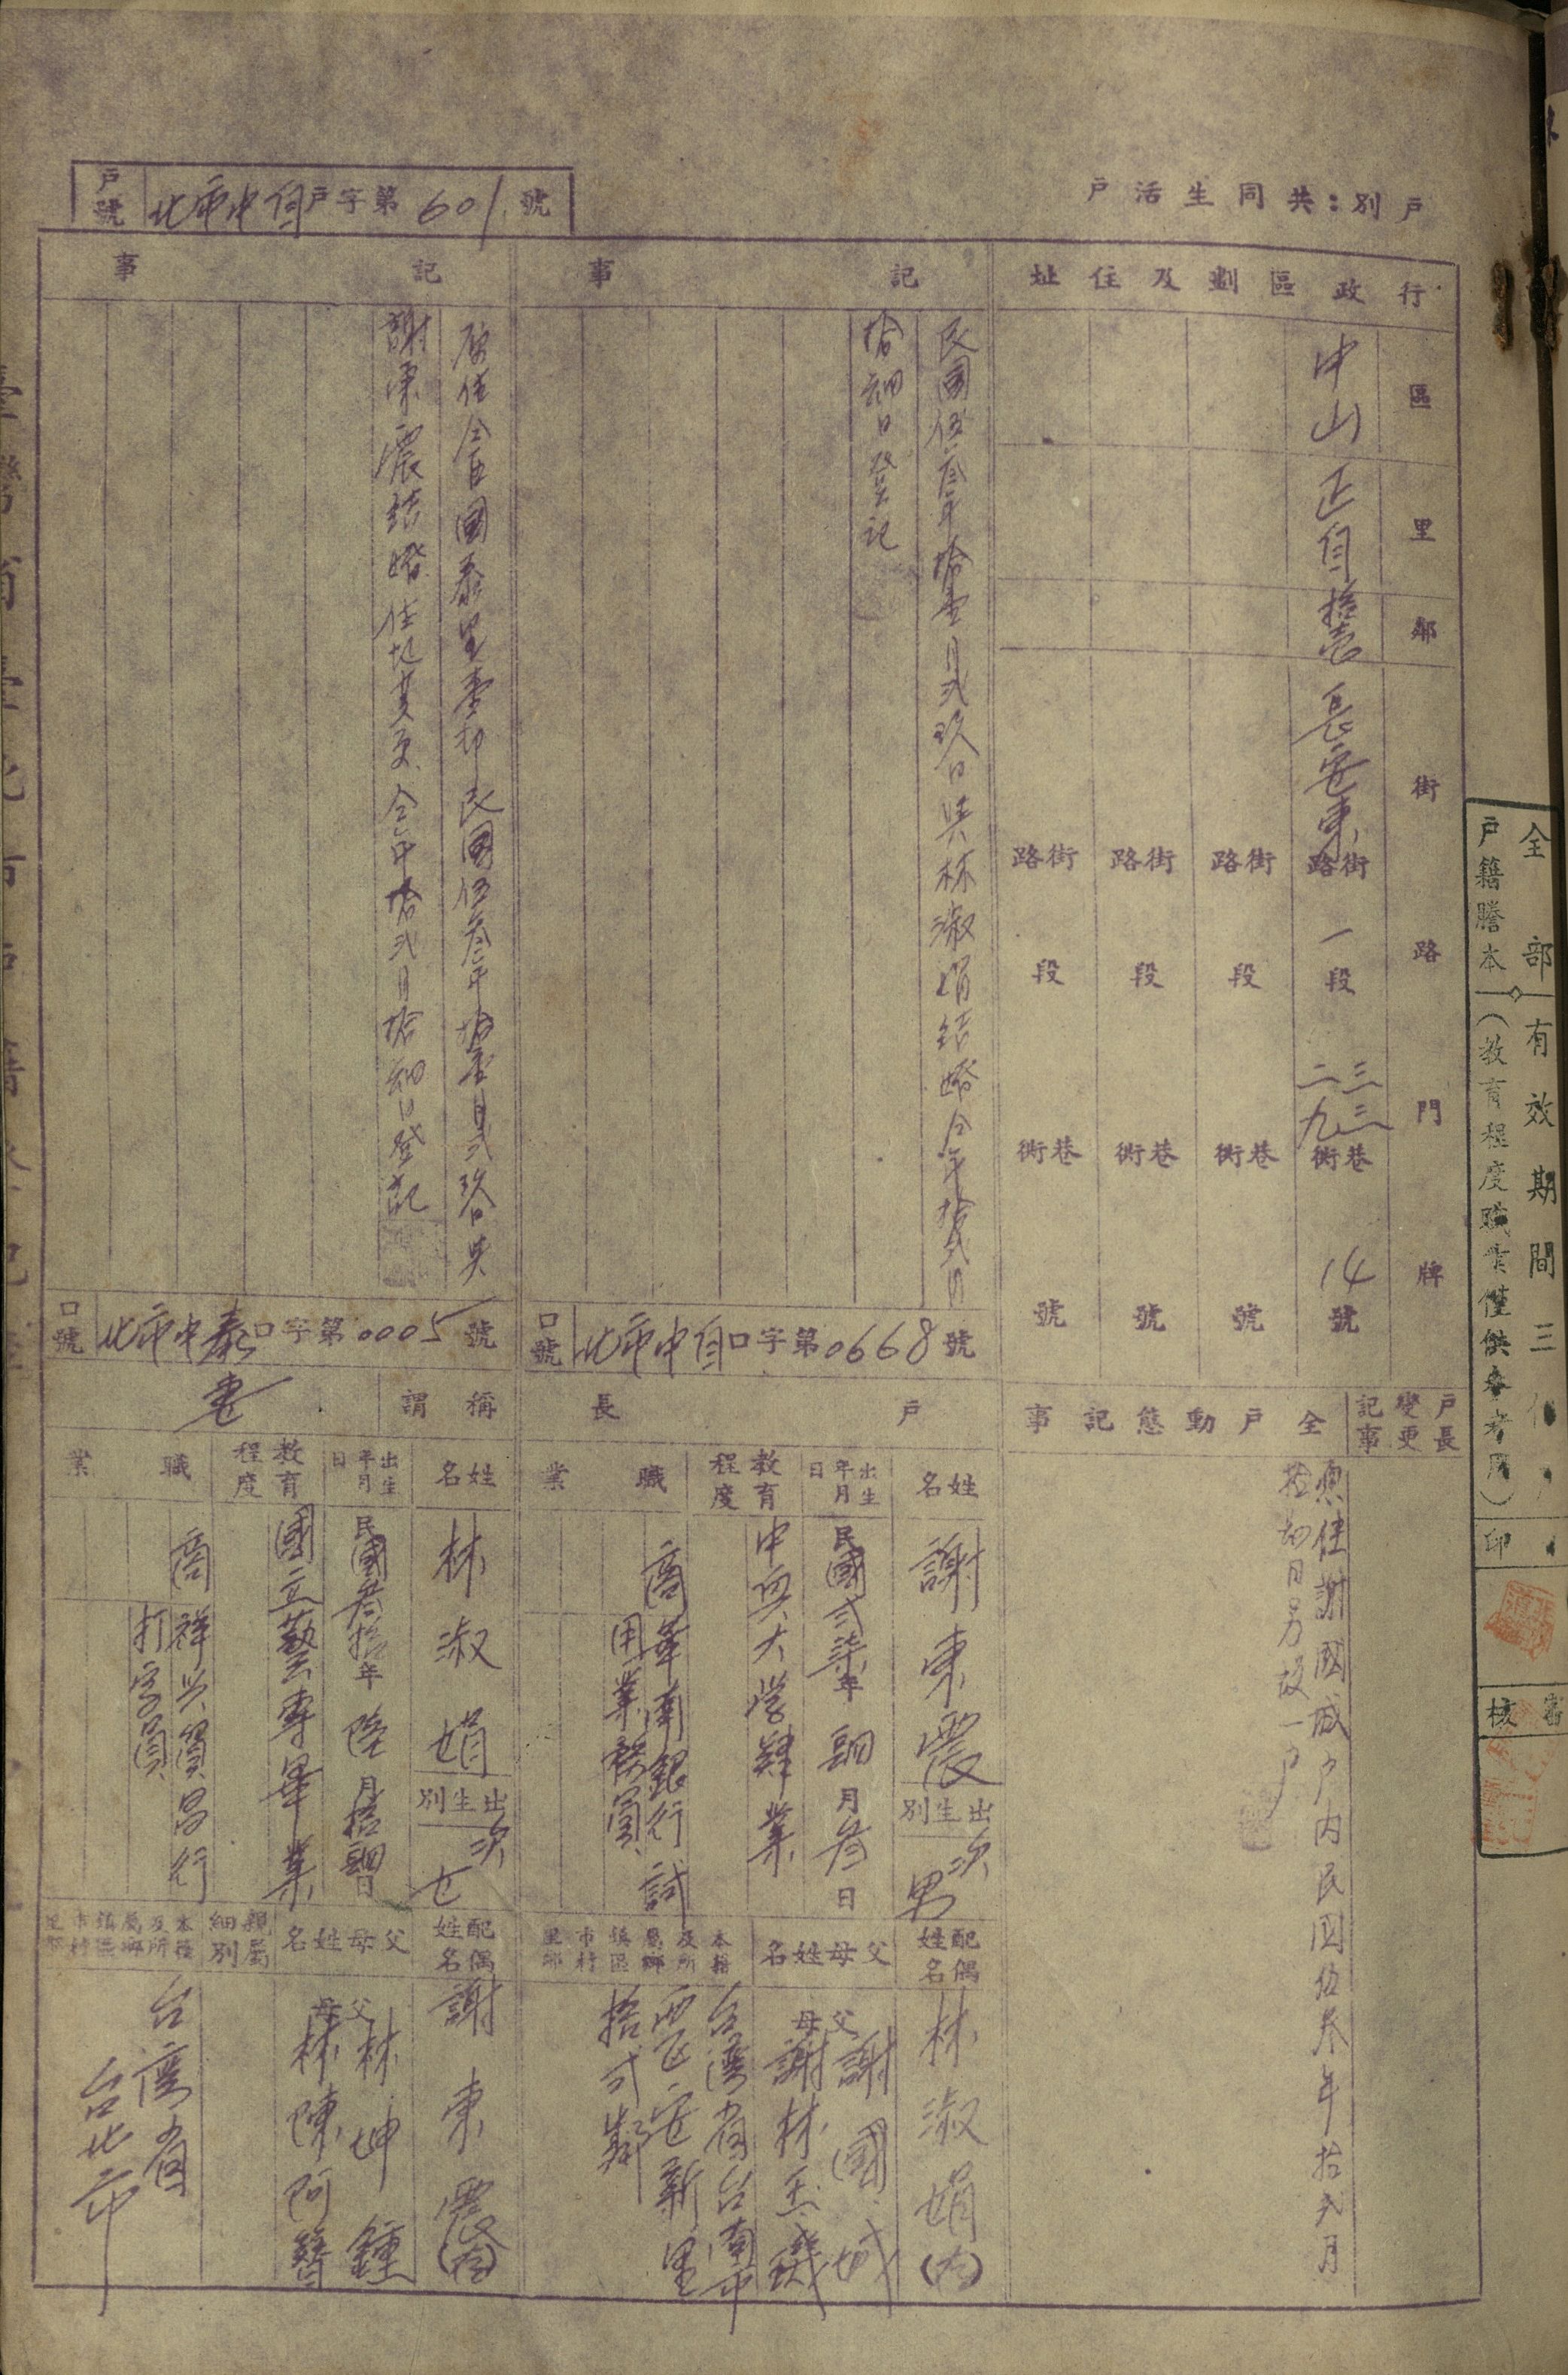 戶別：共同生活戶
戶號 北市中自戶字第601號
行政區劃及住址
區 里 鄰 街 路 門 牌
中山 正自 拾壹 長安東路街 一段 二三九三衖巷 14號
路街 段 衖巷 號
路街 段 衖巷 號
路街 段 衖巷 號
戶長變更記事
全戶動態記事
原住謝國城戶內民國伍叁年拾弍月
拾四日另設一戶
記事
民國伍叁年拾壹月弍玖日與林淑娟結婚仝年拾弍月
拾四日登記
口號 北市中自口字第0668號
戶長
姓名 謝東震
出生別 次男
出生年月日 民國弍柒年四月叁日
教育程度 中興大学肄業
職業 商 華南銀行試
用業務員
配偶姓名 林淑娟(内)
父母姓名 父 謝國城
母 謝林玉
本籍及所屬鄉鎮區市村里鄰
台灣省台南市
西區安新里
拾弍鄰
記事
原住仝區國泰里壹鄰民國伍叁年拾壹月弍玖日與
謝東震結婚住址變更仝年拾弍月拾四日登記
口號 北市中泰口字第0005號
稱謂 妻
姓名 林淑娟
出生別 次女
出生年月日 民國叁拾年陸月拾四日
教育程度 國立藝專畢業
職業 商 祥兴貿易行
打字員
配偶姓名 謝東震(内)
父母姓名 父 林坤鐘
母 林陳阿
親屬細別
本籍及所屬鄉鎮區市村里鄰
台湾省
台北市
全部有效期間三
戶籍謄本（教育程度職業僅供參考用）
印
審核